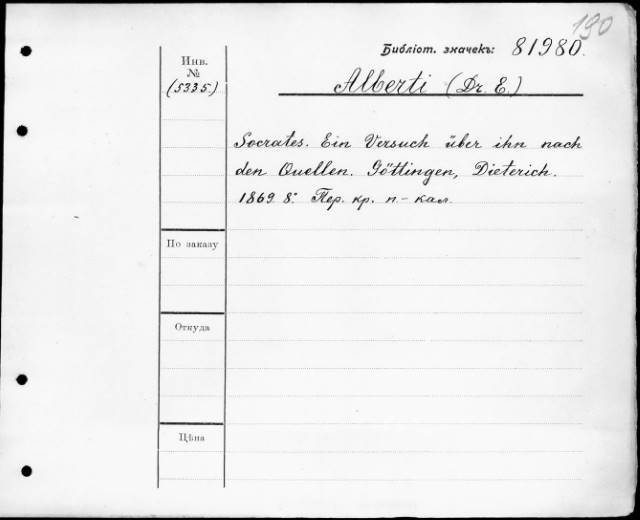 190
Библіот. значекъ: 81980.
Инв.
№
(5335)
Alberti (Dr. E.)
Socrates. Ein Versuch über ihn nach
den Quellen. Göttingen, Dieterich.
1869. 8º. Пер. кр. п.-кал.
По заказу
Откуда
Цѣна